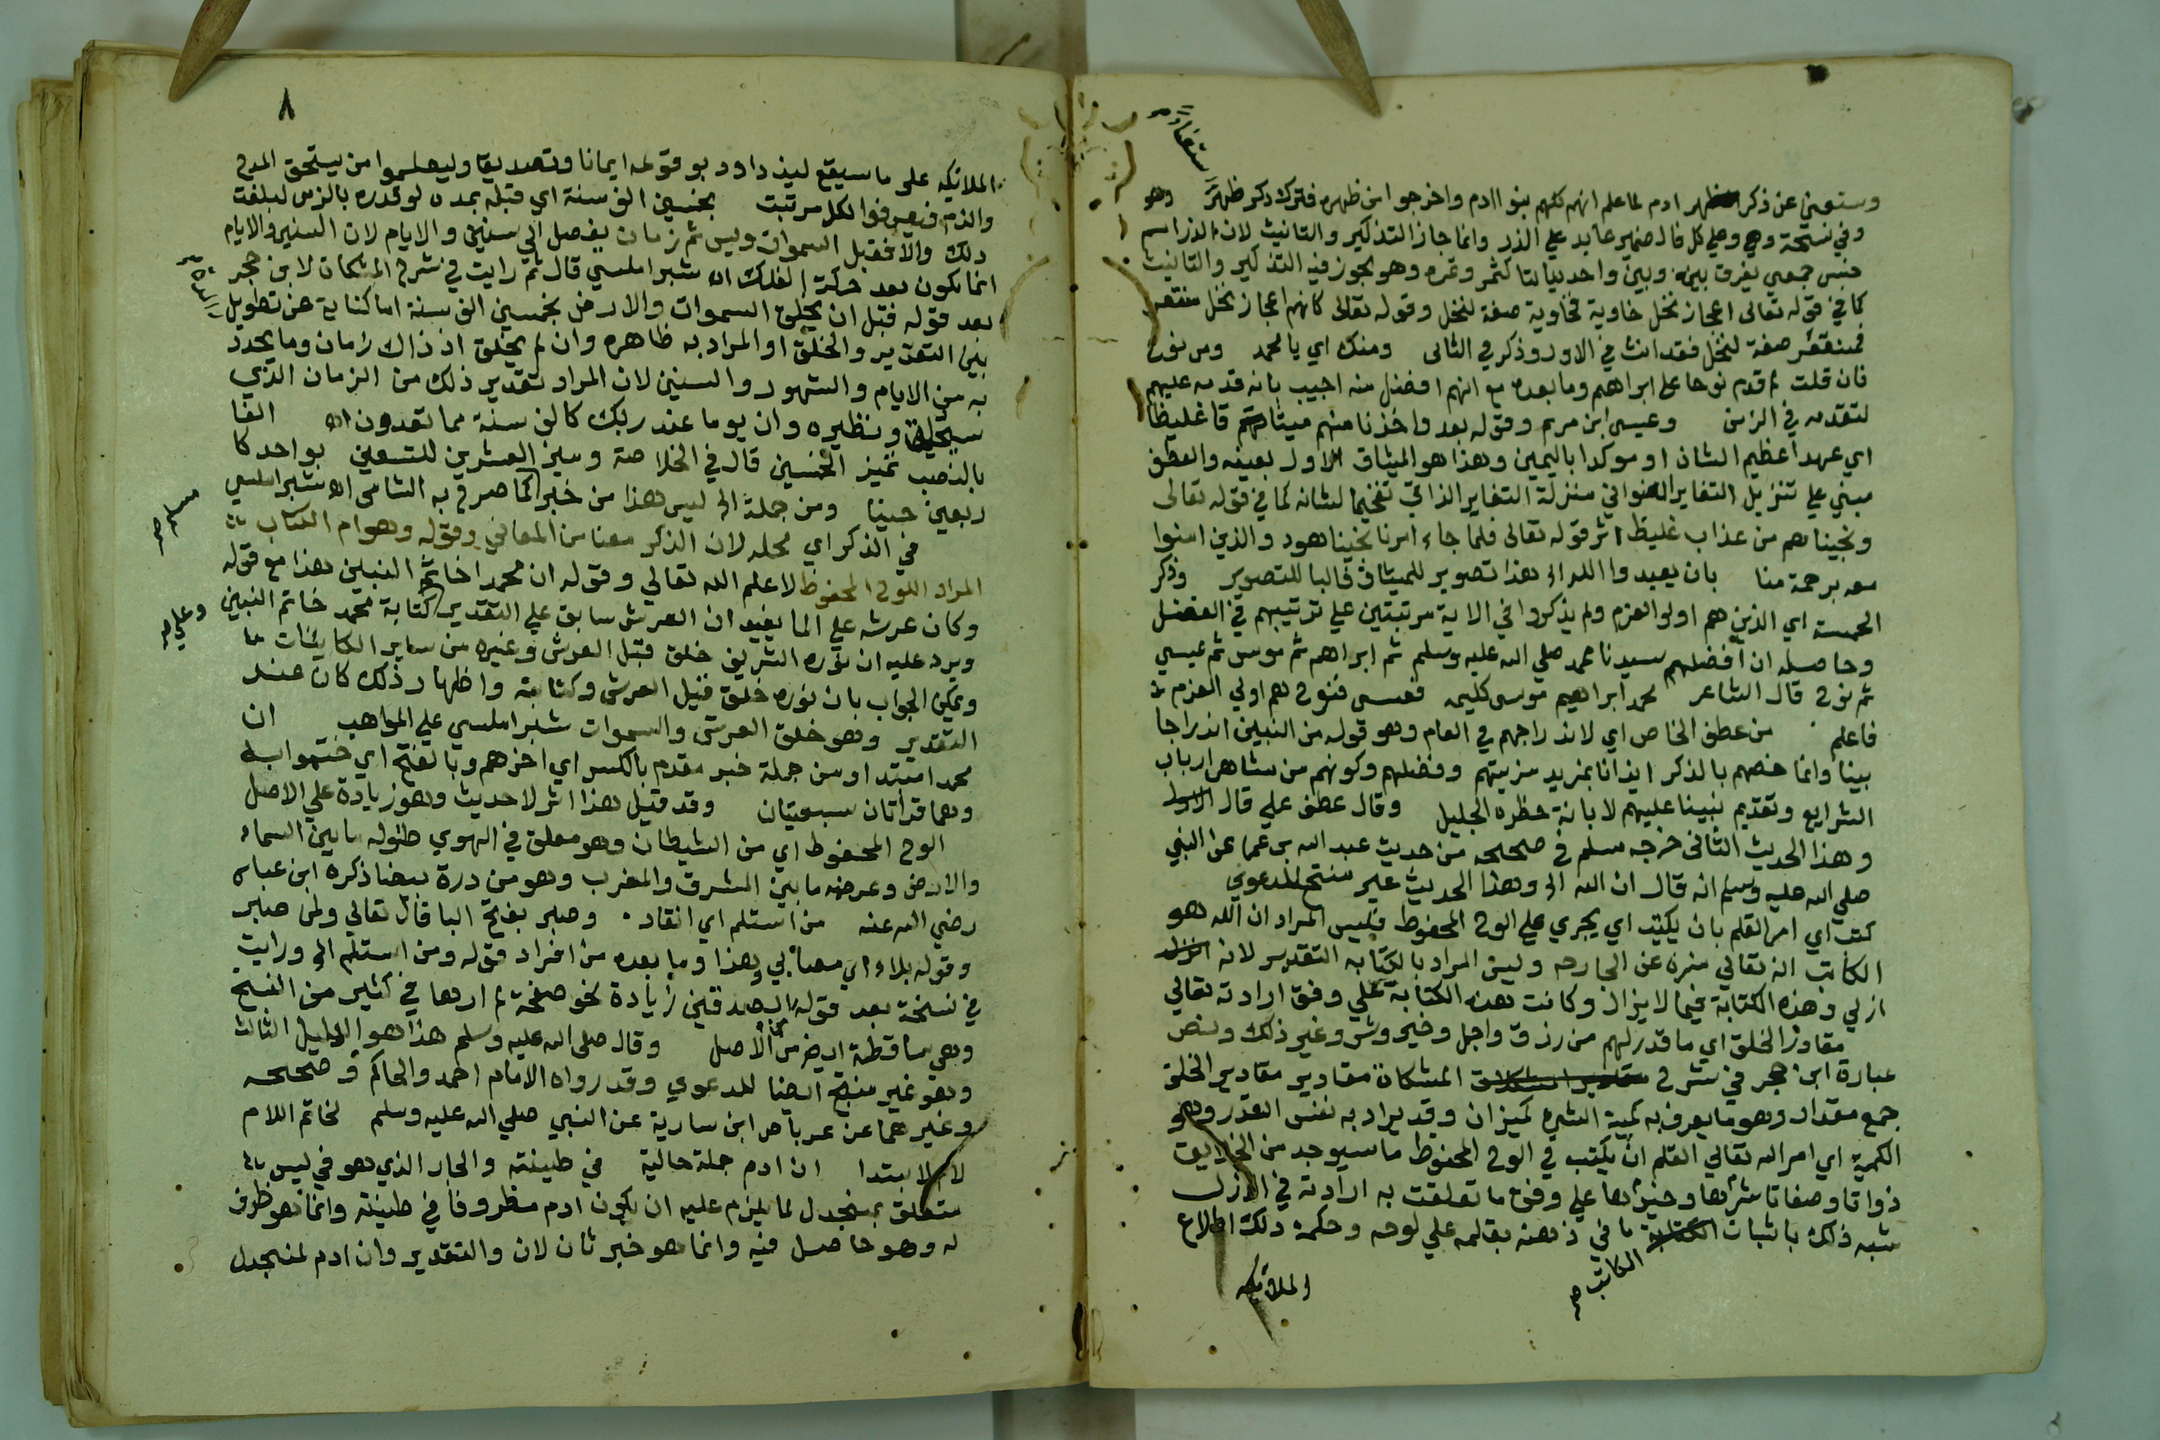 وستغني عن ذكر ظهر ادم لما علم انهم كلهم بنوا ادم واخرجوا من ظهره فترك ذكر ظهر وهو
وفي نسخة وهي وعلي كل فالضمير عايد علي الذر وانما جاز التذكير والتانيث لان الذر اسم
جنس جمعي يفرق بينه وبين واحده بالتا كتمر وتمره وهو يجوز فيه التذكير والتانيث
كما في قوله تعالى اعجاز نخل خاوية فخاوية صفة لنخل وقوله تعالى كانهم اعجاز نخل منقعر
فمنقعر صفة لنخل فقد انث في الاول وذكر في الثانى ومنك اي يا محمد ومن نوح
فان قلت لم قدم نوحا على ابراهيم وما بعده مع انهم افضل منه اجيب بانه قدمه عليهم
لتقدمه في الزمن وعيسى ابن مريم وقوله بعد واخذنا منهم ميثاقا غليظا
اي عهدا عظيم الشان او موكدا باليمين وهذا هو الميثاق الاول بعينه والعطف
مبني علي تنزيل التغاير العنواني منزلة التغاير الذاتي تفخيما لشانه كما في قوله تعالى
ونجيناهم من عذاب غليظ اثر قوله تعالى فلما جاء امرنا نجينا هود والذين امنوا
معه برحمة منا بان يعبدوا الله الى هذا تصوير للميثاق فالبا للتصوير وذكر
الخمسة اي الذين هم اولوا العزم ولم يذكروا في الاية مرتبين علي ترتيبهم في الفضل
وحاصله ان افضلهم سيدنا محمد صلي الله عليه وسلم ثم ابراهيم ثم موسى ثم عيسي
ثم نوح قال الشاعر محمد ابراهيم موسى كليمه فعيسى فنوح هم اولي العزم
فاعلم من عطف الخاص اي لاندراجهم في العام وهو قوله من النبيين اندراجا
بينا وانما خصهم بالذكر ايذانا بمزيد مزيتهم وفضلهم وكونهم من مشاهر ارباب
الشرايع وتقديم نبينا عليهم لابانة خطره الجليل وقال عطف علي قال الاول
وهذا الحديث الثانى خرجه مسلم في صحيحه من حديث عبد الله بن عمر عن النبي
صلي الله عليه وسلم انه قال ان الله الى وهذا الحديث غير منتج للدعوي
كتب اي امر القلم بان يكتب اي يجري علي الوح المحفوظ فليس المراد ان الله هو
الكاتب انه تعالي منزه عن الجارحه وليس المراد بالكتابه التقدير لانه
ازلي وهذه الكتابة فيما لا يزال وكانت هذه الكتابة علي وفق ارادته تعالي
مقادير الخلق اي ما قدر لهم من رزق واجل وخير وشر وغير ذلك ونص
عبارة ابن حجر في شرح المشكاة مقادير مقادير الخلق
جمع مقدار وهو ما يعرف به كمية الشي كميزان وقد يراد به نفس القدر وهو
الكمية اي امر الله تعالي القلم ان يكتب في الوح المحفوظ ما سيوجد من الخلايق
ذواتا وصفاتا شرها وخيرها علي وفق ما تعلقت به ارادته في الازل
شبه ذلك باثبات الكاتب ما في ذهنه بقلمه علي لوحه وحكمة ذلك اطلاع
الملائكه
٨
الملائكه على ما سيقع ليزدادوا بوقوعه ايمانا وتصديقا وليعلموا من يستحق المدح
والذم فيعرفوا لكل مرتبته بخمسين الف سنة اي قبله بمده لو قدره بالزمن لبلغت
ذلك والا فقبل السموات وليس ثم زمان يفصل الي سنين والايام لان السنين والايام
انما تكون بعد حركة الفلك اه شبراملسي قال ثم رايت في شرح المشكاة لابن حجر
بعد قوله قبل ان يخلق السموات والارض بخمسين الف سنة اما كناية عن تطويل
بين التقدير والخلق او المراد به ظاهره وان لم يخلق اذ ذاك زمان وما يحدد
به من الايام والشهور والسنين لان المراد تقدير ذلك من الزمان الذي
سيخلق ونظيره وان يوما عند ربك كالف سنة مما تعدون اه الفا
بالنصب تمييز الخمسين قال في الخلاصة وميز العشرين للتسعين بواحد كا
ربعين حينا ومن جملة الى ليس هذا من خبر مسلم كما صرح به الشامى اه شبراملسي
في الذكر اي محله لان الذكر معنا من المعاني وقوله وهو ام الكتاب
المراد اللوح المحفوظ لا علم الله تعالي وقوله ان محمدا خاتم النبيين هذا مع قوله
وكان عرشه علي الما يفيد ان العرش سابق علي التقدير وعلي كتابة محمد خاتم النبيين
ويرد عليه ان نوره الشريف خلق قبل العرش وغيره من ساير الكاينات
ويمكن الجواب بان نوره خلق قبل العرش وكتابته واظهار ذلك كان عند
التقدير وهو خلق العرش والسموات شبراملسي علي المواهب ان
محمد امبتدا ومن جملة خبر مقدم بالكسر اي اخرهم وبالفتح اي ختموا به
وهما قراتان سبعيتان وقد قيل هذا اثر لا حديث وهو زيادة علي الاصل
الوح المحفوظ اي من الشيطان وهو معلق في الهوي طوله ما بين السماء
والارض وعرضه ما بين المشرق والمغرب وهو من درة بيضا ذكره ابن عباس
رضي الله عنه من استلم اي انقاد. وصبر بفتح البا قال تعالي ولمن صبر
وقوله بلاء اي مصأبي وهذا وما بعده من افراد قوله ومن استلم الى ورايت
في نسخة بعد قوله الصديقين زيادة نحو صفحة لم ارها في كثير من النسخ
وهي ساقطة ايضا من الاصل وقال صلى الله عليه وسلم هذا هو الدليل الثالث
وهو غير منتج ايضا للدعوي وقد رواه الامام احمد والحاكم وصححه
وغيرهما عن عرباض ابن سارية عن النبي صلي الله عليه وسلم لخاتم اللام
لام الابتدا ان ادم جملة حالية في طينته والجار الذي هو في ليس
متعلق بمنجدل لما يلزم عليه ان يكون ادم مظروفا في طينته وانما هو ظرف
له وهو حاصل فيه وانما هو خبر ثان لان والتقدير وان ادم لمنجدل